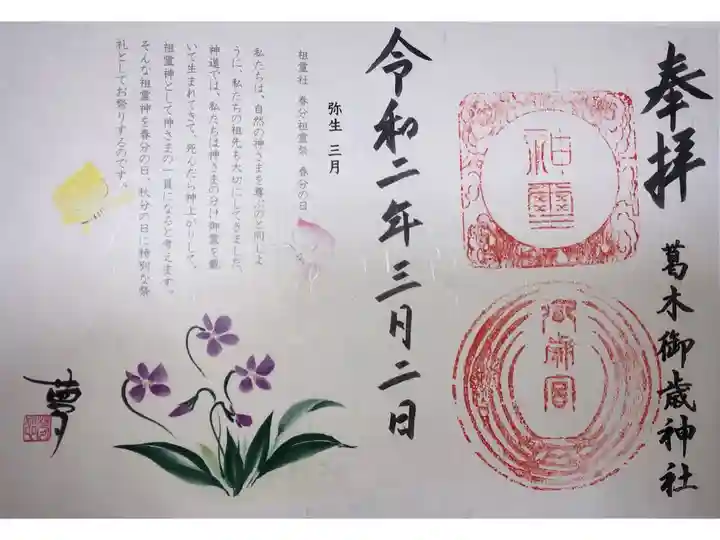 奉拝
葛木御歳神社
令和二年三月二日
弥生 三月
祖霊社 春分祖霊祭 春分の日
私たちは、自然の神さまを尊ぶのと同じよ
うに、私たちの祖先も大切にしてきました。
神道では、私たちは神さまの分け御霊を戴
いて生まれてきて、死んだら神上がりして、
祖霊神として神さまの一員になると考えます。
そんな祖霊神を春分の日、秋分の日に特別な祭
礼としてお祭りするのです。
夢